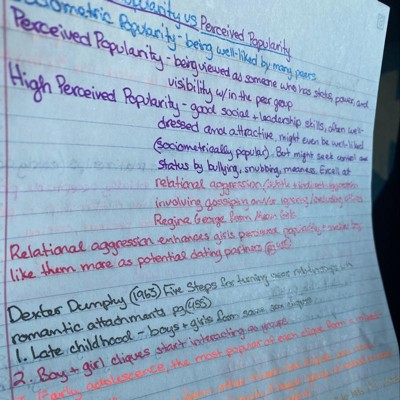 Popularity vs Perceived Popularity
Sociometric Popularity - being well-liked by many peers
Perceived Popularity - being viewed as someone who has status, power, and
visibility w/in the peer group
High Perceived Popularity - good social + leadership skills, often well-
dressed and attractive, might even be well-liked
(sociometrically popular). But might seek control and
status by bullying, snubbing, meanness. Excel at
relational aggression/subtle + indirect aggression
involving gossiping and/or ignoring/excluding others
Regina George from Mean Girls
Relational aggression enhances girls perceived popularity +
like them more as potential dating partners
Dexter Dumphy (1963) Five Steps for turning
romantic attachments pg(455)
1. Late childhood - boys + girls form same sex cliques
2. Boy + girl cliques start interacting as groups
3. Early adolescence, the most popular of each clique form a